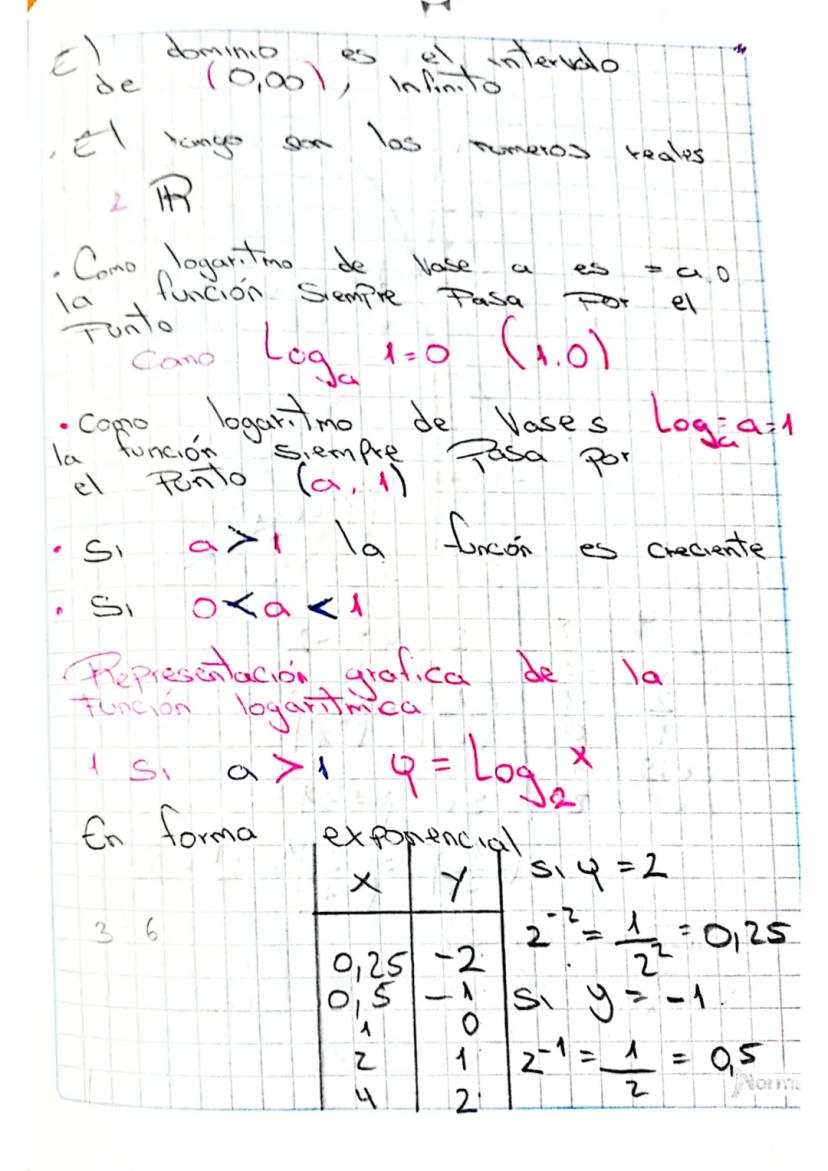 El dominio es el intervalo
de (0,∞), infinito
. El rango son los numeros reales
2 ℝ
. Como logaritmo de Vase a es = a,0
la función siempre Pasa Por el
Punto
Como Log_a 1=0 (1,0)
• Como logaritmo de Vases Log_a=a=1
la función siempre Pasa por
el Punto (a, 1)
• Si a>1 la función es creciente
• Si 0<a<1
Representación grafica de la
función logaritmica
1 Si a>1 y = Log_2 x
En forma exponencial
x | y
0,25 | -2
0,5 | -1
1 | 0
2 | 1
4 | 2
3 6
si y = 2
2^-2 = 1/2^2 = 0,25
Si y = -1
2^-1 = 1/2 = 0,5
Norma